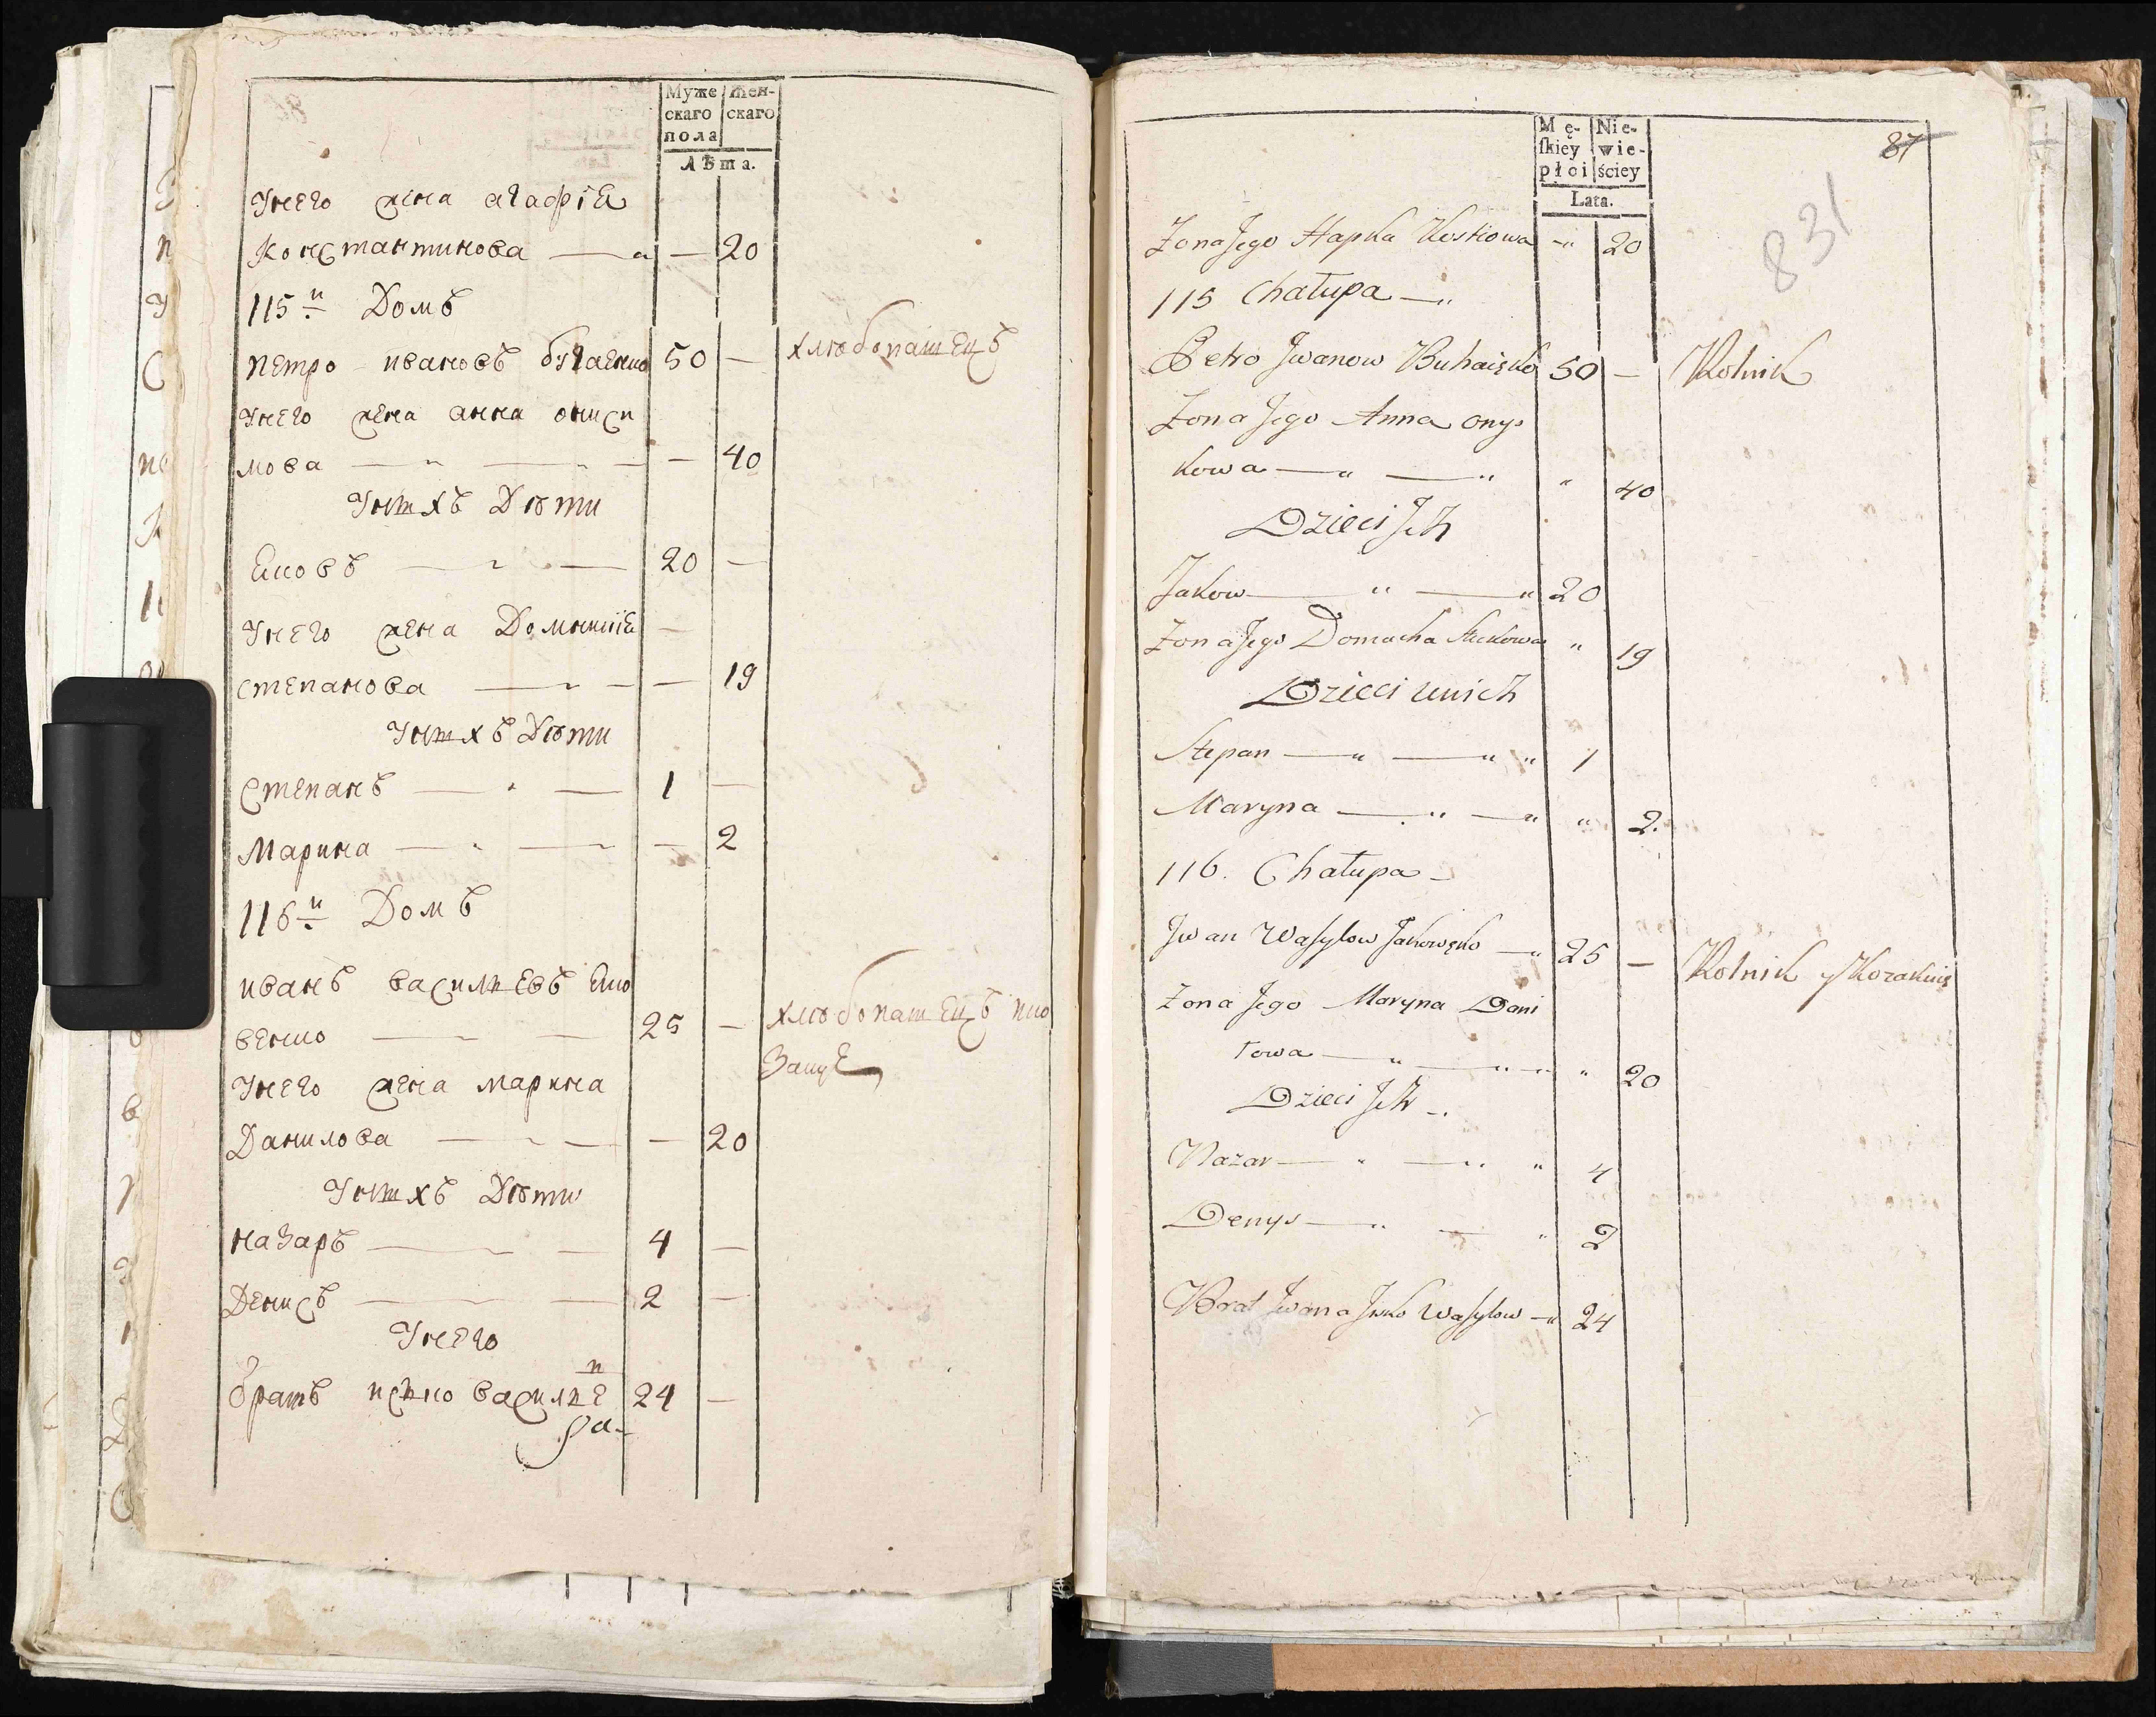 Муже Жен-
скаго скаго
пола
Лѣта.
Унего жена агафiя
Константинова — " — 20
115й Домъ
петро ивановъ бугаенко 50 — хлѣбопашецъ
Унего жена анна ониси
мова — " — " — — 40
Унихъ Дѣти
Яковъ — " — 20 —
Унего жена Домникiя —
степанова — " — — 19
Унихъ Дѣти
Степанъ — " — 1 —
Марина — " — — 2
116й Домъ
иванъ васильевъ яко
венко — — 25 — хлѣбопашецъ ико
Унего жена марина
Данилова — " — — 20
Унихъ Дѣти
назаръ — — 4 —
Денисъ — — 2 —
Унего
братъ исько василье 24 —
87
831
Mę- Nie-
ſkiey wie-
płci ściey
Lata.
Zona Jego Hapka Kostiowa " 20
115 Chałupa — "
Petro Jwanow Buhaięko 50 — Rolnik
Zona Jego Anna Onys
kowa — " — " " 40
Dzieci Jch
Jakow — " — " 20
Zona Jego Domacha Steckowa " 19
Dzieci unich
Stepan — " — " " 1
Maryna — " — " " 2.
116. Chałupa —
Jwan Waſylow Jakowęko — " 25 — Rolnik y Kozakuię
Zona Jego Maryna Dani
łowa — " — " " 20
Dzieci Jch —.
Nazar — " — " " 4
Denys — " — " 2
Brat Jwana Jśko Waſylow — " 24